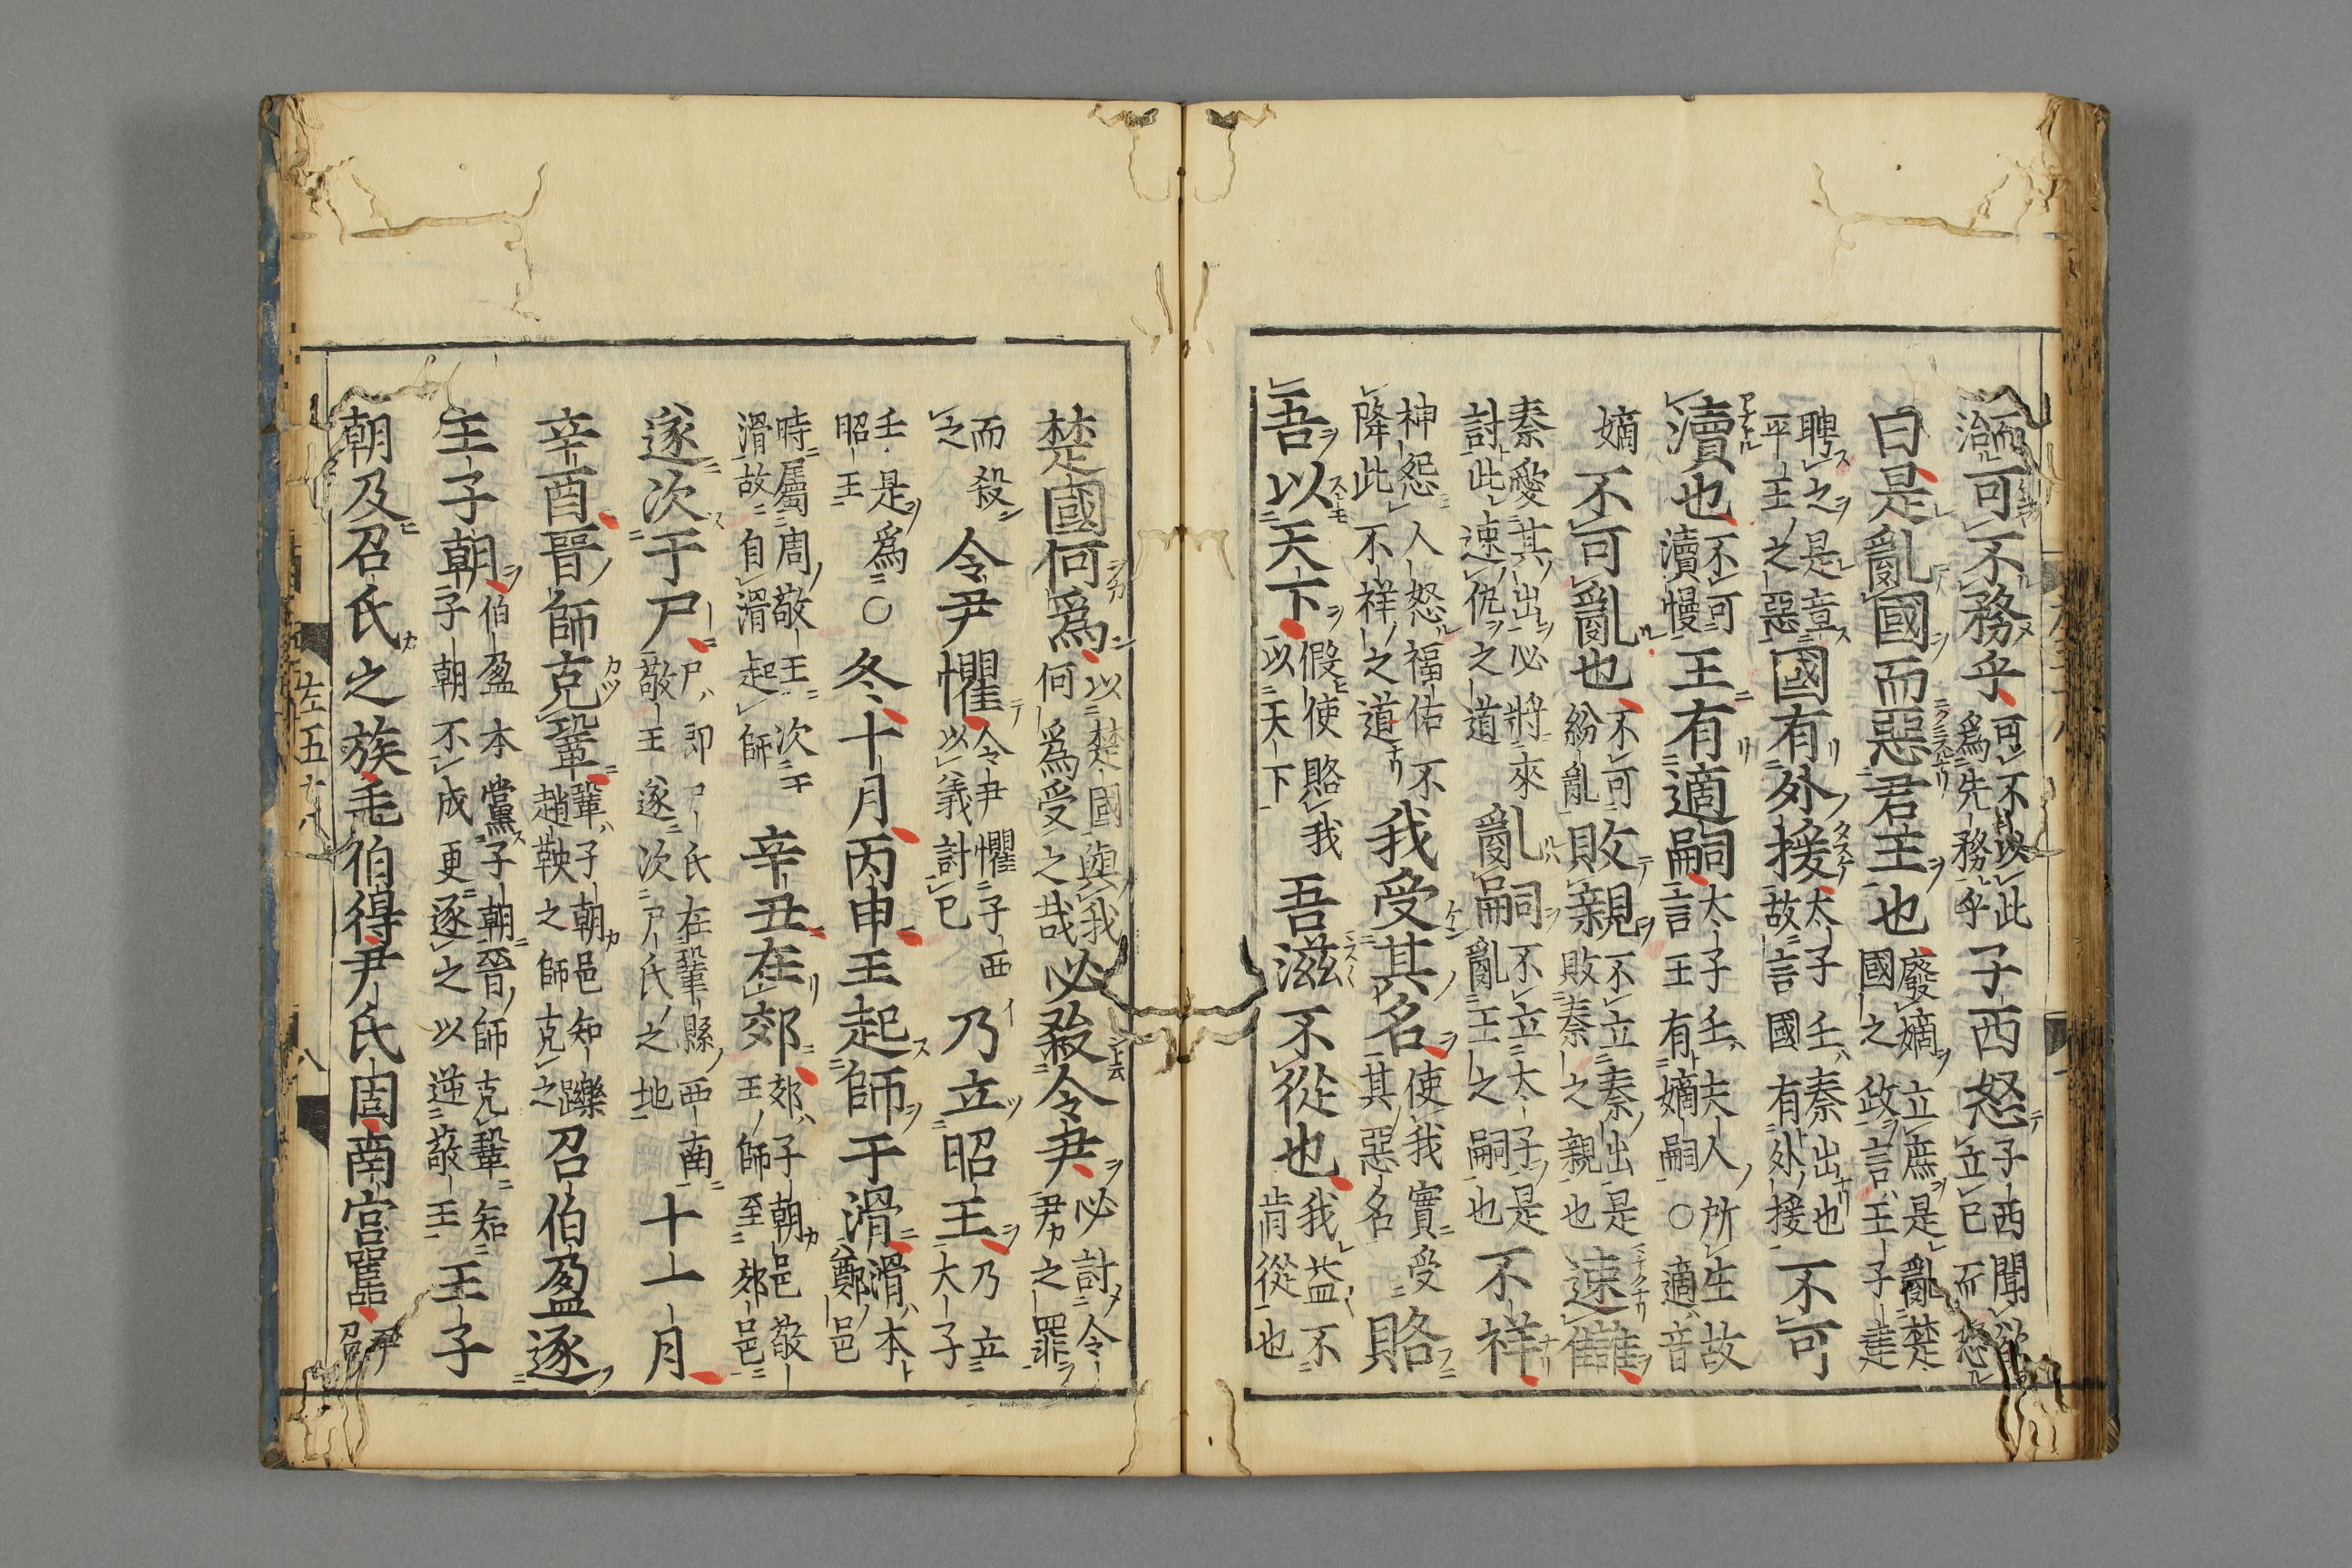 治可不務乎可不以此爲先務乎子西怒子西聞欲立已而怒
曰是亂國而惡君王也廢嫡立庶是亂楚國之政言王子建
聘之是章平王之惡國有外援太子壬秦出也故言國有外接不可
瀆也不可瀆慢王有適嗣太子壬夫人所生故言王有嫡嗣○適音
嫡不可亂也不可紛亂敗親不立秦出是敗秦之親也速讎
秦愛其出必將來討此速仇之道亂嗣不立太子是亂王之嗣也不祥
神怨人怒福佑不降此不祥之道我受其名使我實受其惡名賂
吾以天下假使賂我以天下吾滋不從也我益不肯從也
楚國何爲以楚國與我何爲受之哉必殺令尹必討令尹之罪
而殺之令尹懼令尹懼子西以義討已乃立昭王乃立大子
壬是爲昭王○冬十月丙申王起師于滑滑本鄭邑
時屬周敬王次于滑故自滑起師辛丑在郊郊子朝邑敬王師至郊邑
遂次于尸尸即尸氏在鞏縣西南敬王遂次尸氏之地十一月
辛酉晉師克鞏鞏子朝邑知躒趙鞅之師克之召伯盈逐
王子朝伯盈本黨子朝晉師克鞏知子朝不成更逐之以逆敬王王子
朝及召氏之族毛伯得尹氏固南宮嚚尹召
左五十八
八